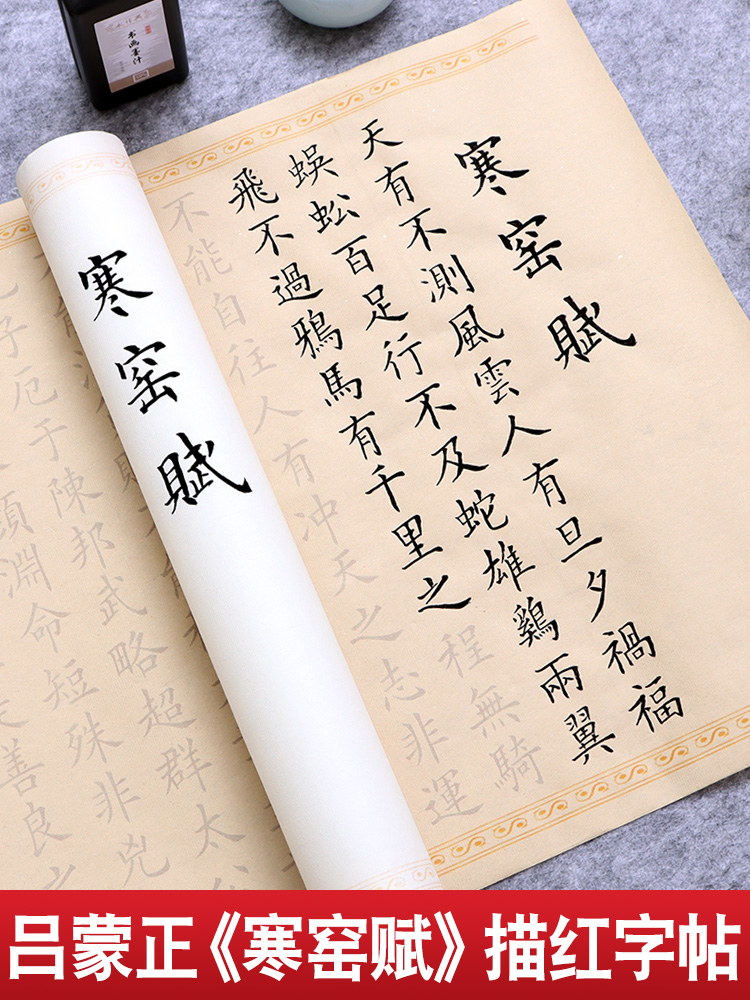 书画墨汁
寒窑賦
天有不測風雲人有旦夕禍福
蜈蚣百足行不及蛇雄鷄兩翼
飛不過鴉馬有千里之程無騎
不能自往人有冲天之志非運
寒窑賦
子厄于陳邦武略超群太
淵命短殊非兇
善良之
吕蒙正《寒窑赋》描红字帖